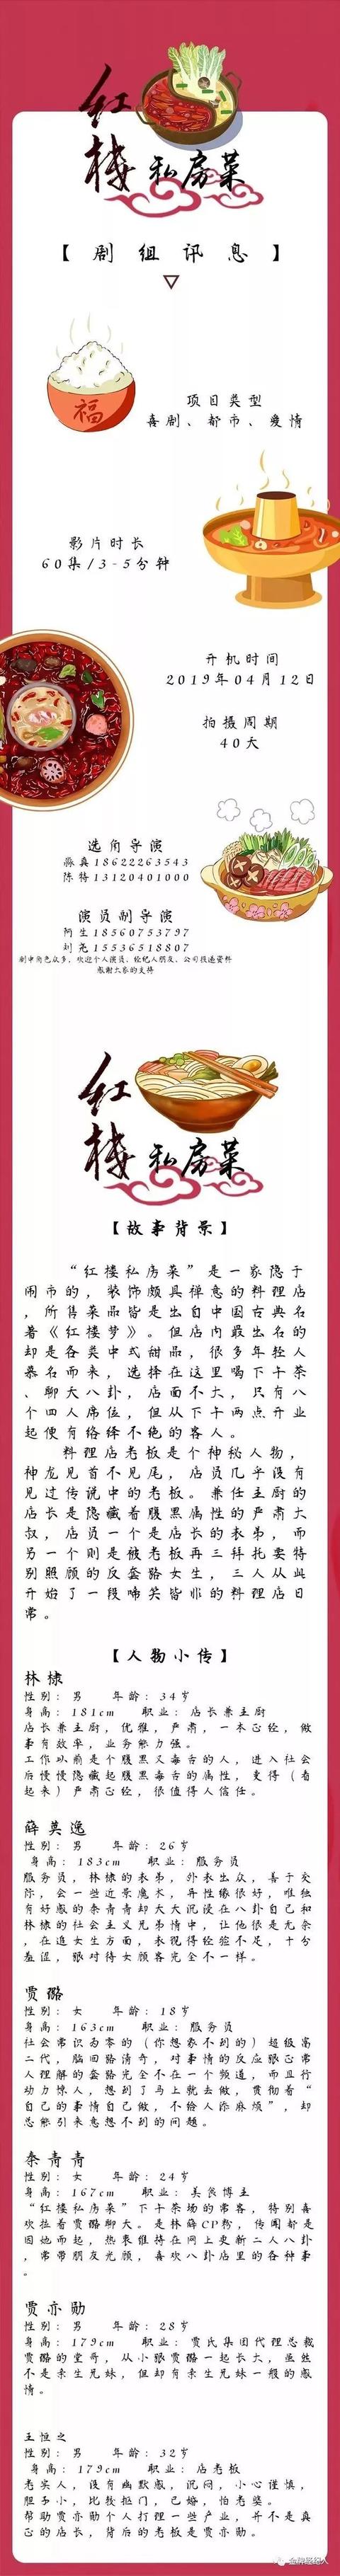 红楼
私房菜
【剧组讯息】
福
项目类型
喜剧、都市、爱情
影片时长
60集/3-5分钟
开机时间
2019年04月12日
拍摄周期
40天
选角导演
陈特13120401000
18622263543
演员副导演
阿生18560753797
刘尧15536518807
剧中角色众多，欢迎个人演员、经纪人朋友、公司投递资料
感谢大家的支持
红楼
私房菜
【故事背景】
“红楼私房菜”是一家隐于
闹市的，装饰颇具禅意的料理店
，所售菜品皆是出自中国古典名
著《红楼梦》。但店内最出名的
却是各类中式甜品，很多年轻人
慕名而来，选择在这里喝下午茶
、聊天八卦，店面不大，只有八
个四人席位，但从下午两点开业
起便有络绎不绝的客人。
料理店老板是个神秘人物，
神龙见首不见尾，店员几乎没有
见过传说中的老板。兼任主厨的
店长是隐藏着腹黑属性的严肃大
叔，店员一个是店长的表弟，而
另一个则是被老板再三拜托要特
别照顾的反套路女生，三人从此
开始了一段啼笑皆非的料理店日
常。
【人物小传】
林棣
性别：男 年龄：34岁
身高：181cm 职业：店长兼主厨
店长兼主厨，优雅，严肃，一本正经，做
事有效率，业务能力强。
工作以前是个腹黑又毒舌的人，进入社会
后慢慢隐藏起腹黑毒舌的属性，变得（看
起来）严肃正经，很值得人信任。
薛莫逸
性别：男 年龄：26岁
身高：183cm 职业：服务员
服务员，林棣的表弟，外表出众，善于交
际，会一些近景魔术，异性缘很好，唯独
有好感的秦青青却天天沉浸在八卦自己和
林棣的社会主义兄弟情中，让他很是无奈
，在追女生方面，表现得经验不足，十分
羞涩，跟对待女顾客完全不一样。
贾璐
性别：女 年龄：18岁
身高：163cm 职业：服务员
社会常识为零的（你想象不到的）超级富
二代，脑回路清奇，对事情的反应跟正常
人理解的套路完全不在一个频道，而且行
动力惊人，想到了马上就去做，贯彻着“
自己的事情自己做，不给人添麻烦”，却
总能引来意想不到的问题。
秦青青
性别：女 年龄：24岁
身高：167cm 职业：美食博主
“红楼私房菜”下午茶场的常客，特别喜
欢拉着贾璐聊天。是林薛CP粉，传闻都是
因她而起，热衷维持在网上更新二人八卦
，常带朋友光顾，喜欢八卦店里的各种事
。
贾亦勋
性别：男 年龄：28岁
身高：179cm 职业：贾氏集团代理总裁
贾璐的堂哥，从小跟贾璐一起长大，虽然
不是亲生兄妹，但却有亲生兄妹一般的感
情。
王恒之
性别：男 年龄：32岁
身高：179cm 职业：店老板
老实人，没有幽默感，沉闷，小心谨慎，
胆子小，比较抠门，已婚，怕老婆。
帮助贾亦勋个人打理一些产业，并不是真
正的店长，背后的老板是贾亦勋。
金牌经纪人